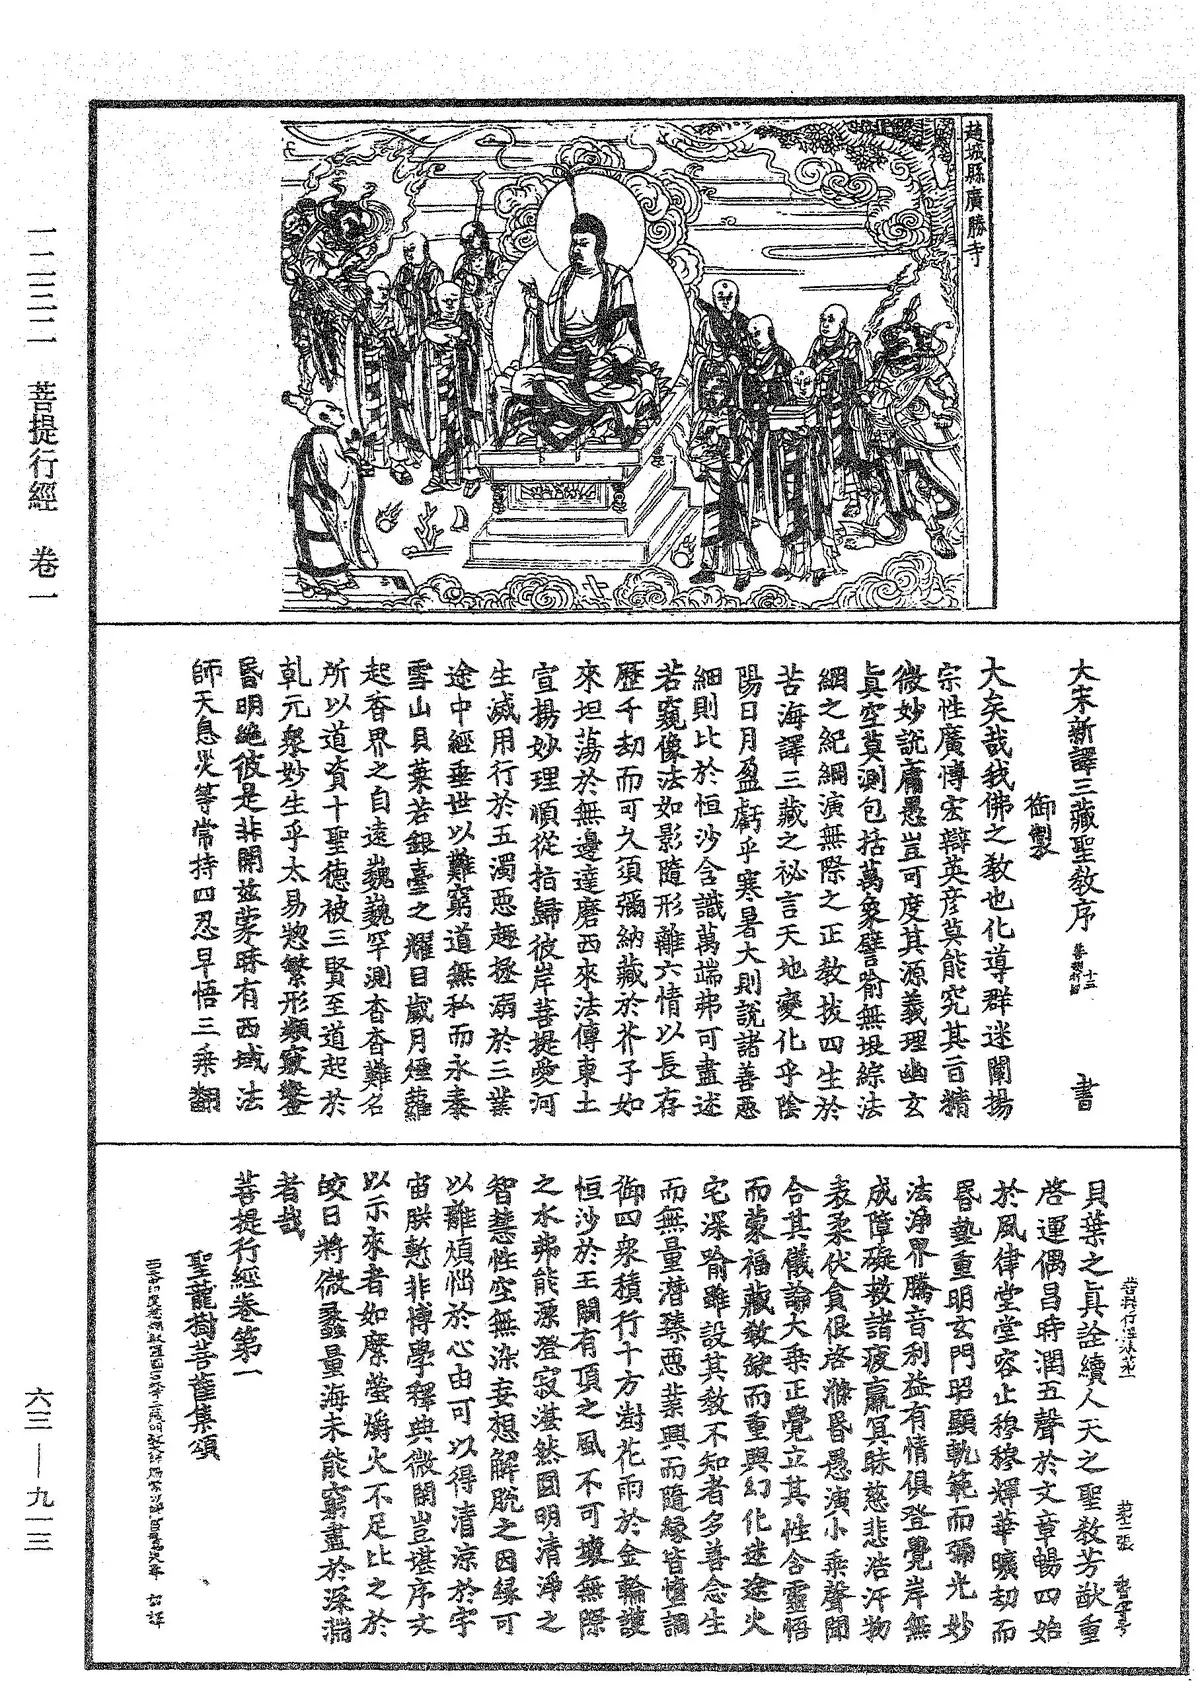 趙城縣廣勝寺
一二三二　菩提行經　卷一
大宋新譯三藏聖教序
書
御製
大矣哉我佛之教也化導群迷闡揚
宗性廣博宏辯英彦莫能究其百精
微妙說庸愚豈可度其源義理幽玄
真空莫測包括萬象譬喻無垠綜法
網之紀綱演無際之正教拔四生於
苦海譯三藏之祕言天地變化乎陰
陽日月盈虧乎寒暑大則說諸善惡
細則比於恒沙含識萬端弗可盡述
若窺像法如影隨形離六情以長存
歷千劫而可久須彌納藏於芥子如
來坦蕩於無邊達磨西來法傳東土
宣揚妙理順從指歸彼岸菩提愛河
生滅用行於五濁惡趣拯溺於三業
途中經垂世以難窮道無私而永泰
雪山貝葉若銀臺之耀目歲月煙蘿
起香界之自遠巍巍罕測杳杳難名
所以道資十聖德被三賢至道起於
乾元衆妙生乎太易惣繁形類竅鑿
昬明絶彼是非開兹蒙昧有西域法
師天息灾等常持四忍早悟三乘翻
菩提行經卷第一
第二張
貝葉之真詮續人天之聖教芳猷重
啓運偶昌時潤五聲於文章暢四始
於風律堂堂容止穆穆輝華曠劫而
昬墊重明玄門昭顯軌範而彌光妙
法淨界騰音利益有情俱登覺岸無
成障礙救諸疲羸冥昧慈悲浩汗物
表柔伏貪很啓滌昬愚演小乘聲聞
合其儀論大乘正覺立其性含靈悟
而蒙福藏教缺而重興幻化迷途火
宅深喻雖設其教不知者多善念生
而無量潛臻惡業興而隨緣皆墮調
御四衆積行十方澍花雨於金輪護
恒沙於王闕有頂之風不可壞無際
之水弗能漂澄寂湛然圓明清淨之
智慧性空無染妄想解脫之因緣可
以離煩惱於心田可以得清涼於宇
宙朕慙非博學釋典微閑豈堪序文
以示來者如縻螢爝火不足比之於
皎日將微蠡量海未能窮盡於深淵
者哉
菩提行經卷第一
聖龍樹菩薩集頌
六三—九一三